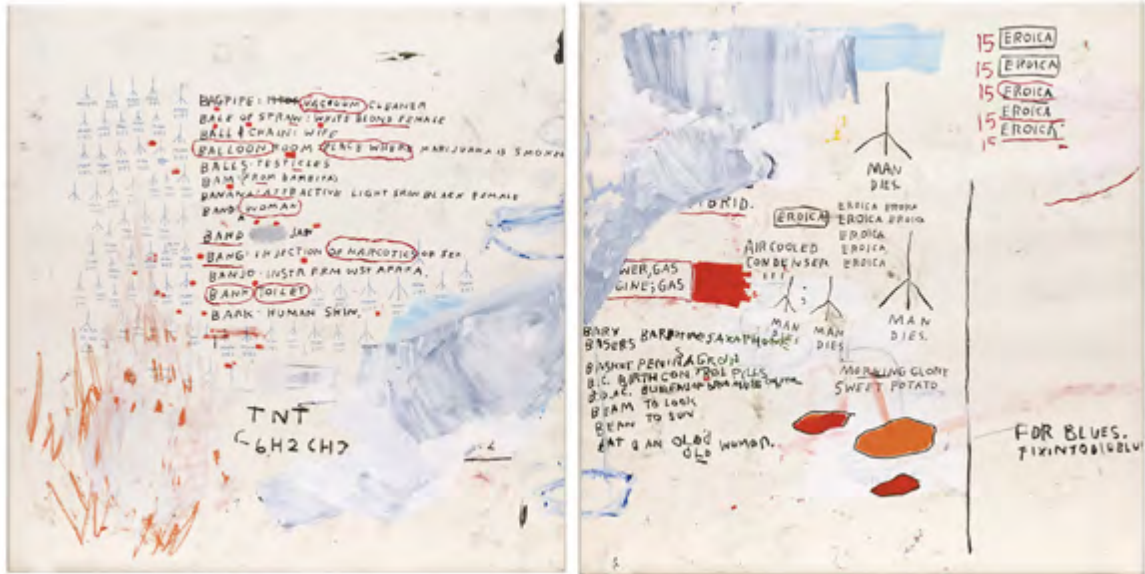 BAGPIPE: VACUUM CLEANER
BALE OF STRAW: WHITE BLOND FEMALE
BALL & CHAIN: WIFE
BALLOON ROOM: PLACE WHERE MARIJUANA IS SMOKED
BALLS: TESTICLES
BAM: (FROM BAMBITA)
BANANA: ATTRACTIVE LIGHT SKIN BLACK FEMALE
BAND: WOMAN
BAND
BANG: INJECTION OF NARCOTICS OR SEX
BANJO: INSTR FRM WST AFRICA.
BANK: TOILET
BARK: HUMAN SKIN.
TNT
C6H2CH3
15 EROICA
15 EROICA
15 EROICA
15 EROICA
EROICA
15
MAN
DIES.
BRID.
EROICA
EROICA EROICA
EROICA EROICA
EROICA
EROICA
EROICA
AIR COOLED
CONDENSER
WER, GAS
GINE; GAS
MAN
DIES
MAN
DIES
MAN
DIES.
BARY
BASERS
SAXAPHONE
B.C. BIRTH CONTROL PILLS
BEAM TO LOOK
BEAN TO SUN
BAT: AN OLD
OLD WOMAN.
MORNING GLORY
SWEET POTATO
FOR BLUES.